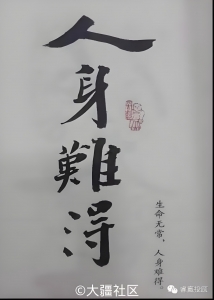 人身難得
生命无常，人身难得。
©大疆社区